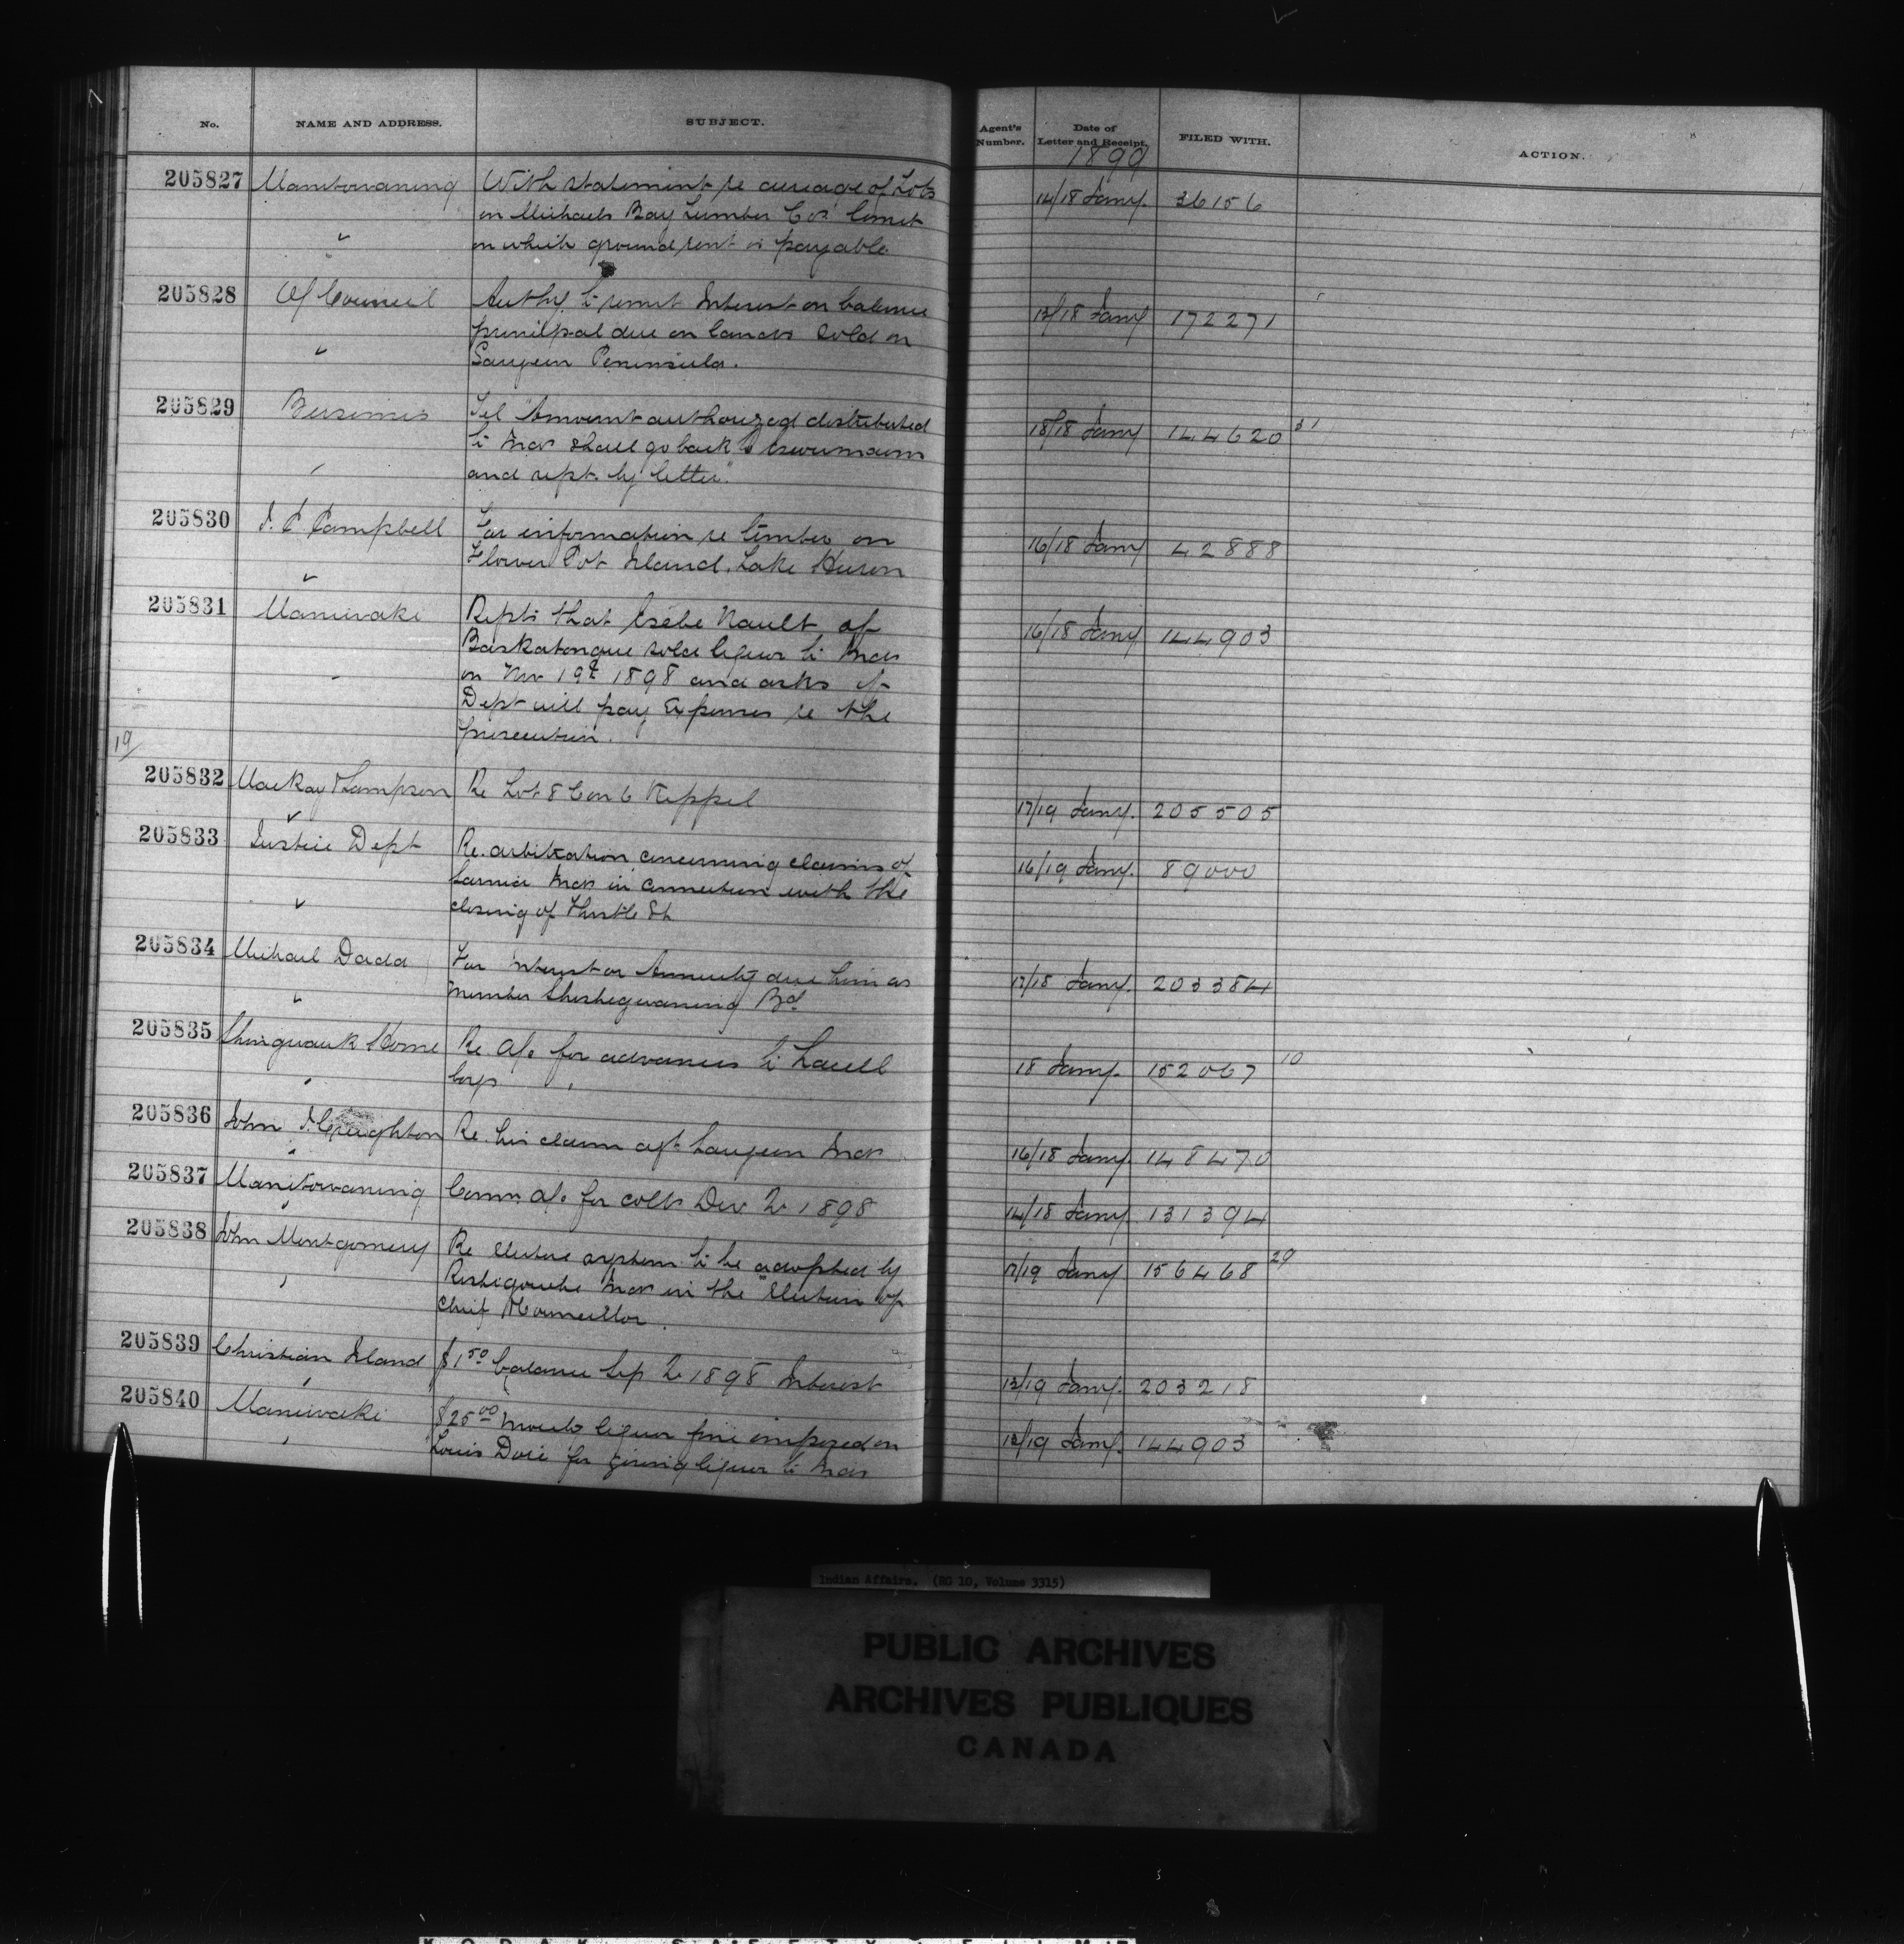 No. NAME AND ADDRESS. SUBJECT. Agent's Number. Date of Letter and Receipt. FILED WITH. ACTION.
1899
205827 Manitowaning With statement re acreage of Lots 14/18 Jany. 36156
on Michaels Bay Lumber Cos' limit
on which ground rent is payable
205828 O/ Council Authy. to remit Interest on balance 13/18 Jany 172271
principal due on lands sold on
Saugeen Peninsula.
205829 Bersimis Tel "Amount authorized distributed 18/18 Jany 144620 31
to Inds shall go back to
and rept. by letter".
205830 Campbell For information re timber on 16/18 Jany 42888
Flower Pot Island, Lake Huron
205831 Maniwaki Repts that Nault of 16/18 Jany 144903
Baskatongue sold liquor to Inds
on Nov 19th 1898 and asks if
Dept will pay expenses re the
prosecution.
19/
205832 MacKay & Sampson Re Lot 8 Con 6 Keppel 17/19 Jany. 205505
205833 Justice Dept Re. arbitration concerning claims of 16/19 Jany. 89000
Sarnia Inds in connection with the
closing of Thistle St
205834 Michael Dada For Interest or Annuity due him as 17/18 Jany. 203384
member Sheshegwaning Bd
205835 Shingwauk Home Re a/c for advances to Lacell 18 Jany. 152067 10
boys
205836 John J. Creighton Re. his claim agt. Saugeen Inds 16/18 Jany. 148470
205837 Manitowaning Comm. a/c for colls Dec Qr 1898 14/18 Jany. 131394
205838 John Montgomery Re elective system to be adopted by 17/19 Jany 156468 29
Restigouche Inds in the Election of
Chief & Councillor.
205839 Christian Island $1.50 balance Sep Qr 1898 Interest 13/19 Jany. 203218
205840 Maniwaki $25.00 liquor fine imposed on 13/19 Jany. 144903
Louis Doré for giving liquor to Inds
Indian Affairs. (RG 10, Volume 3315)
PUBLIC ARCHIVES
ARCHIVES PUBLIQUES
CANADA